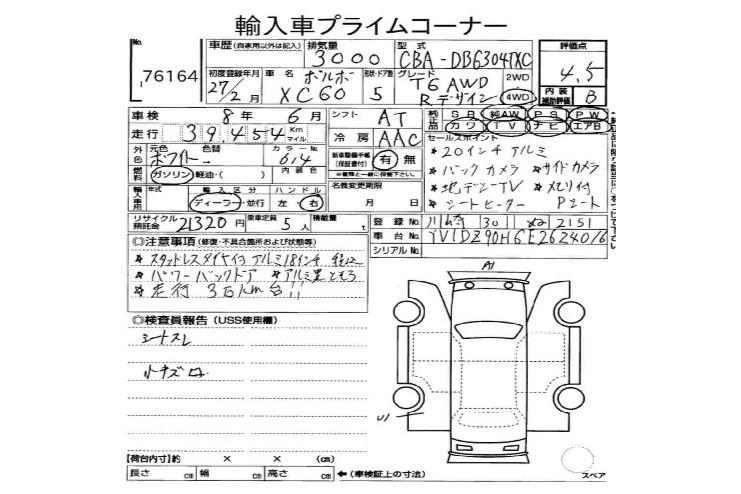 輸入車プライムコーナー
No.
76164
車歴 (自家用以外は記入)
排気量
3000
型式
CBA-DB6304TXC
評価点
4.5
初度登録年月
27/2月
車名
ボルボ
XC60
形状・ドア数
5
グレード
T6 AWD
Rデザイン
2WD
4WD
内装
補助評価
B
車検
8年 6月
シフト
AT
純正品
SR 純AW PS PW
カワ TV ナビ エアB
走行
39,454 Km
マイル
冷房
AAC
セールスポイント
外色
元色
色替
カラーNo.
ホワイト→
614
新車整備手帳
(保証書付)
有 無
*車歴と一緒に保管下さい。
*20インチアルミ
*バックカメラ *サイドカメラ
*地デジTV *メモリ付
*シートヒーター Pシート
燃料
ガソリン 軽油・( )
内装色
輸入車用
年式
輸入区分
ディーラー・並行
ハンドル
左・右
名義変更期限
月 日
リサイクル
預託金
21320円
乗車定員
5人
積載量
t
登録No.
川崎 301 ぬ 2151
車台No.
YV1DZ90H6E2624016
シリアルNo.
◎注意事項 (修復・不具合箇所および状態等)
*スタッドレスタイヤ付アルミ18インチ
*パワーバックドア
*走行 3万km台!!
◎検査員報告 (USS使用欄)
シートスレ
小キズ
A1
U1
【荷台内寸】約 × × (cm)
長さ cm 幅 cm 高さ cm ←(車検証上の寸法)
スペア